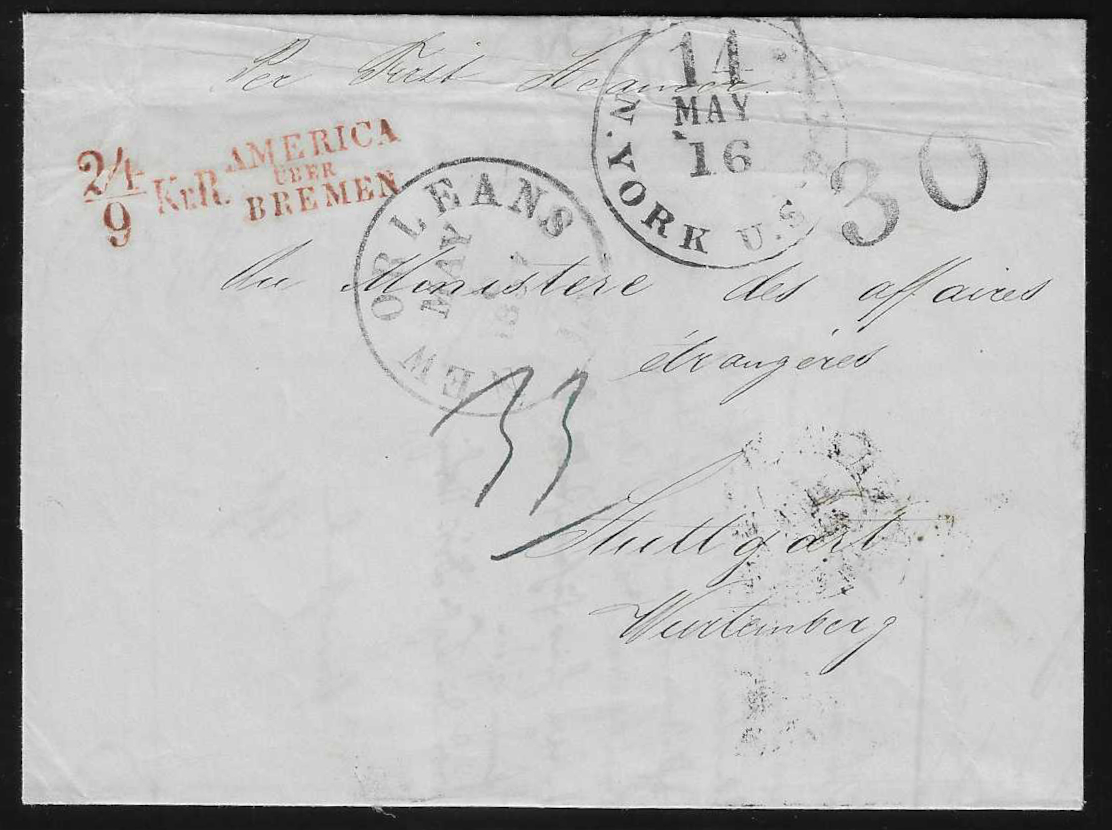 Per First Steamer
14
MAY
16
N. YORK U.S.
30
24/9 KrR.
AMERICA
ÜBER
BREMEN
NEW ORLEANS
MAY
Au Ministere des affaires
étrangéres
33
Stuttgart
Wurtemberg